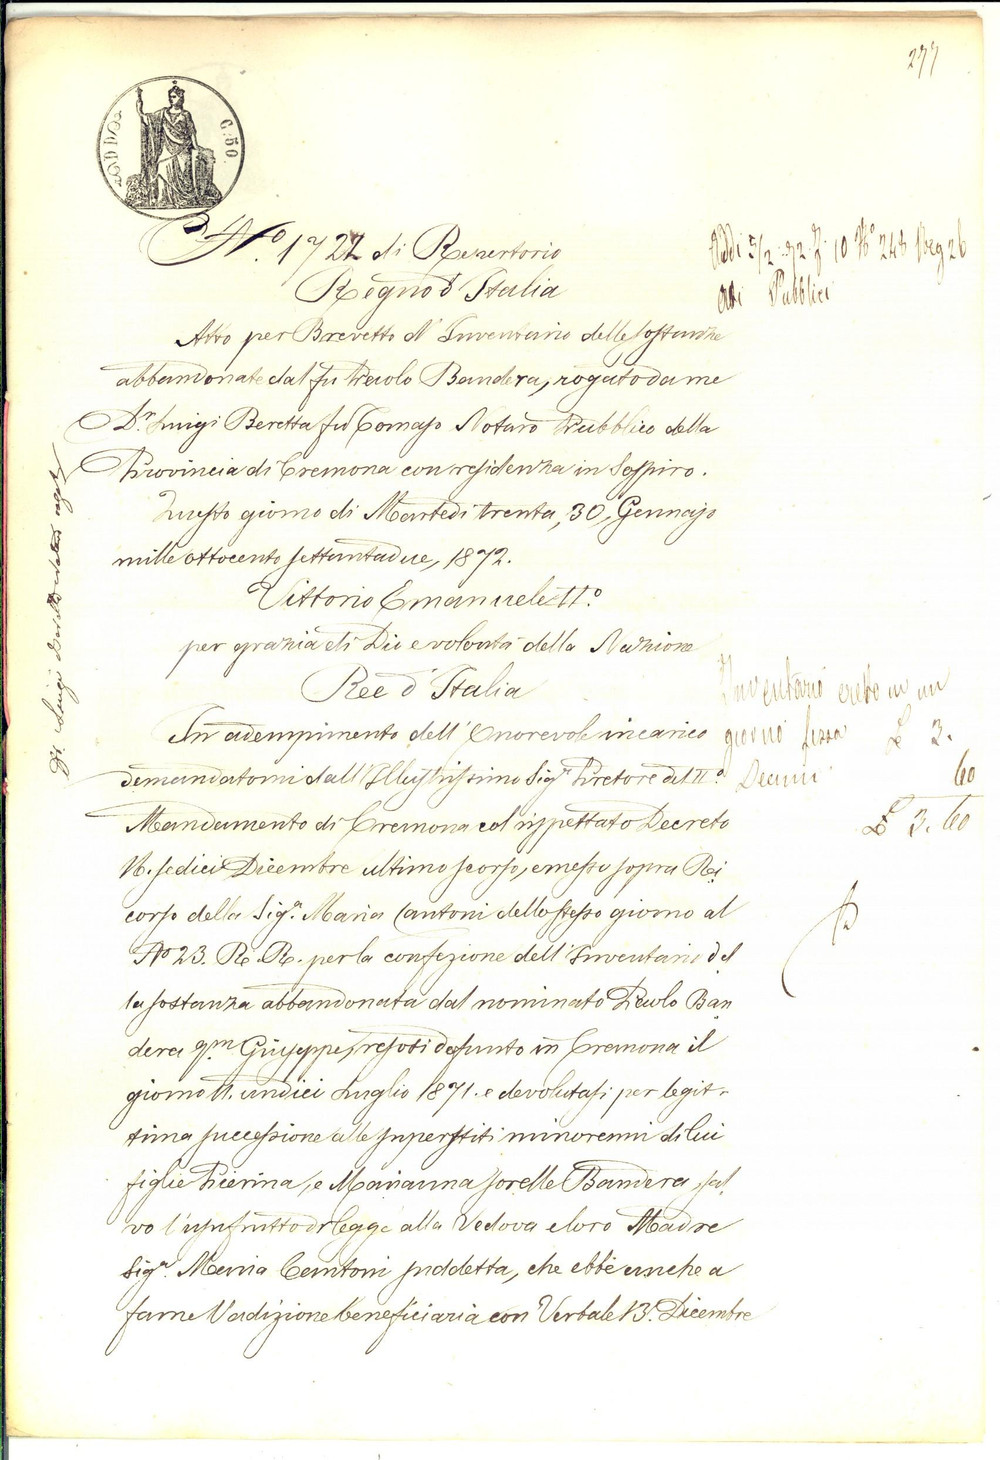 277
C. 50
N.o 1722 di Repertorio
Regno d'Italia
Atto per Brevetto d'Inventario delle sostanze
abbandonate dal fu Paolo Bandera, rogato da me
D.r Luigi Beretta fu Tomaso Notaro Pubblico della
Provincia di Cremona con residenza in Sospiro.
Questo giorno di Martedì trenta, 30, Gennajo
mille ottocento settantadue, 1872.
Vittorio Emanuele II.o
per grazia di Dio e volontà della Nazione
Re d'Italia
In adempimento dell'Onorevole incarico
demandatomi dall'Illustrissimo Sig.r Pretore del II.o
Mandamento di Cremona col rispettato Decreto
16. sedici Dicembre ultimo scorso, emesso sopra Ri
corso della Sig.ra Maria Cantoni dello stesso giorno al
N.o 23. R. R. per la confezione dell'Inventario del
la sostanza abbandonata dal nominato Paolo Ban
dera q.m Giuseppe, resosi defunto in Cremona il
giorno 11. undici Luglio 1871. e devolutasi per legit-
tima successione alle superstiti minorenni di lui
figlie Pierina, e Marianna sorelle Bandera, sal
vo l'usufrutto di legge alla Vedova e loro Madre
Sig.ra Maria Cantoni suddetta, che ebbe anche a
farne l'adizione beneficiaria con Verbale 13. Dicembre
Addi 5/2 72 10 N.o 248 Reg 26
Atti Pubblici
Inventario eretto in un
giorno fissa £ 3.
Decimi 60
£ 3.60
D.r Luigi Beretta Notaro rog.